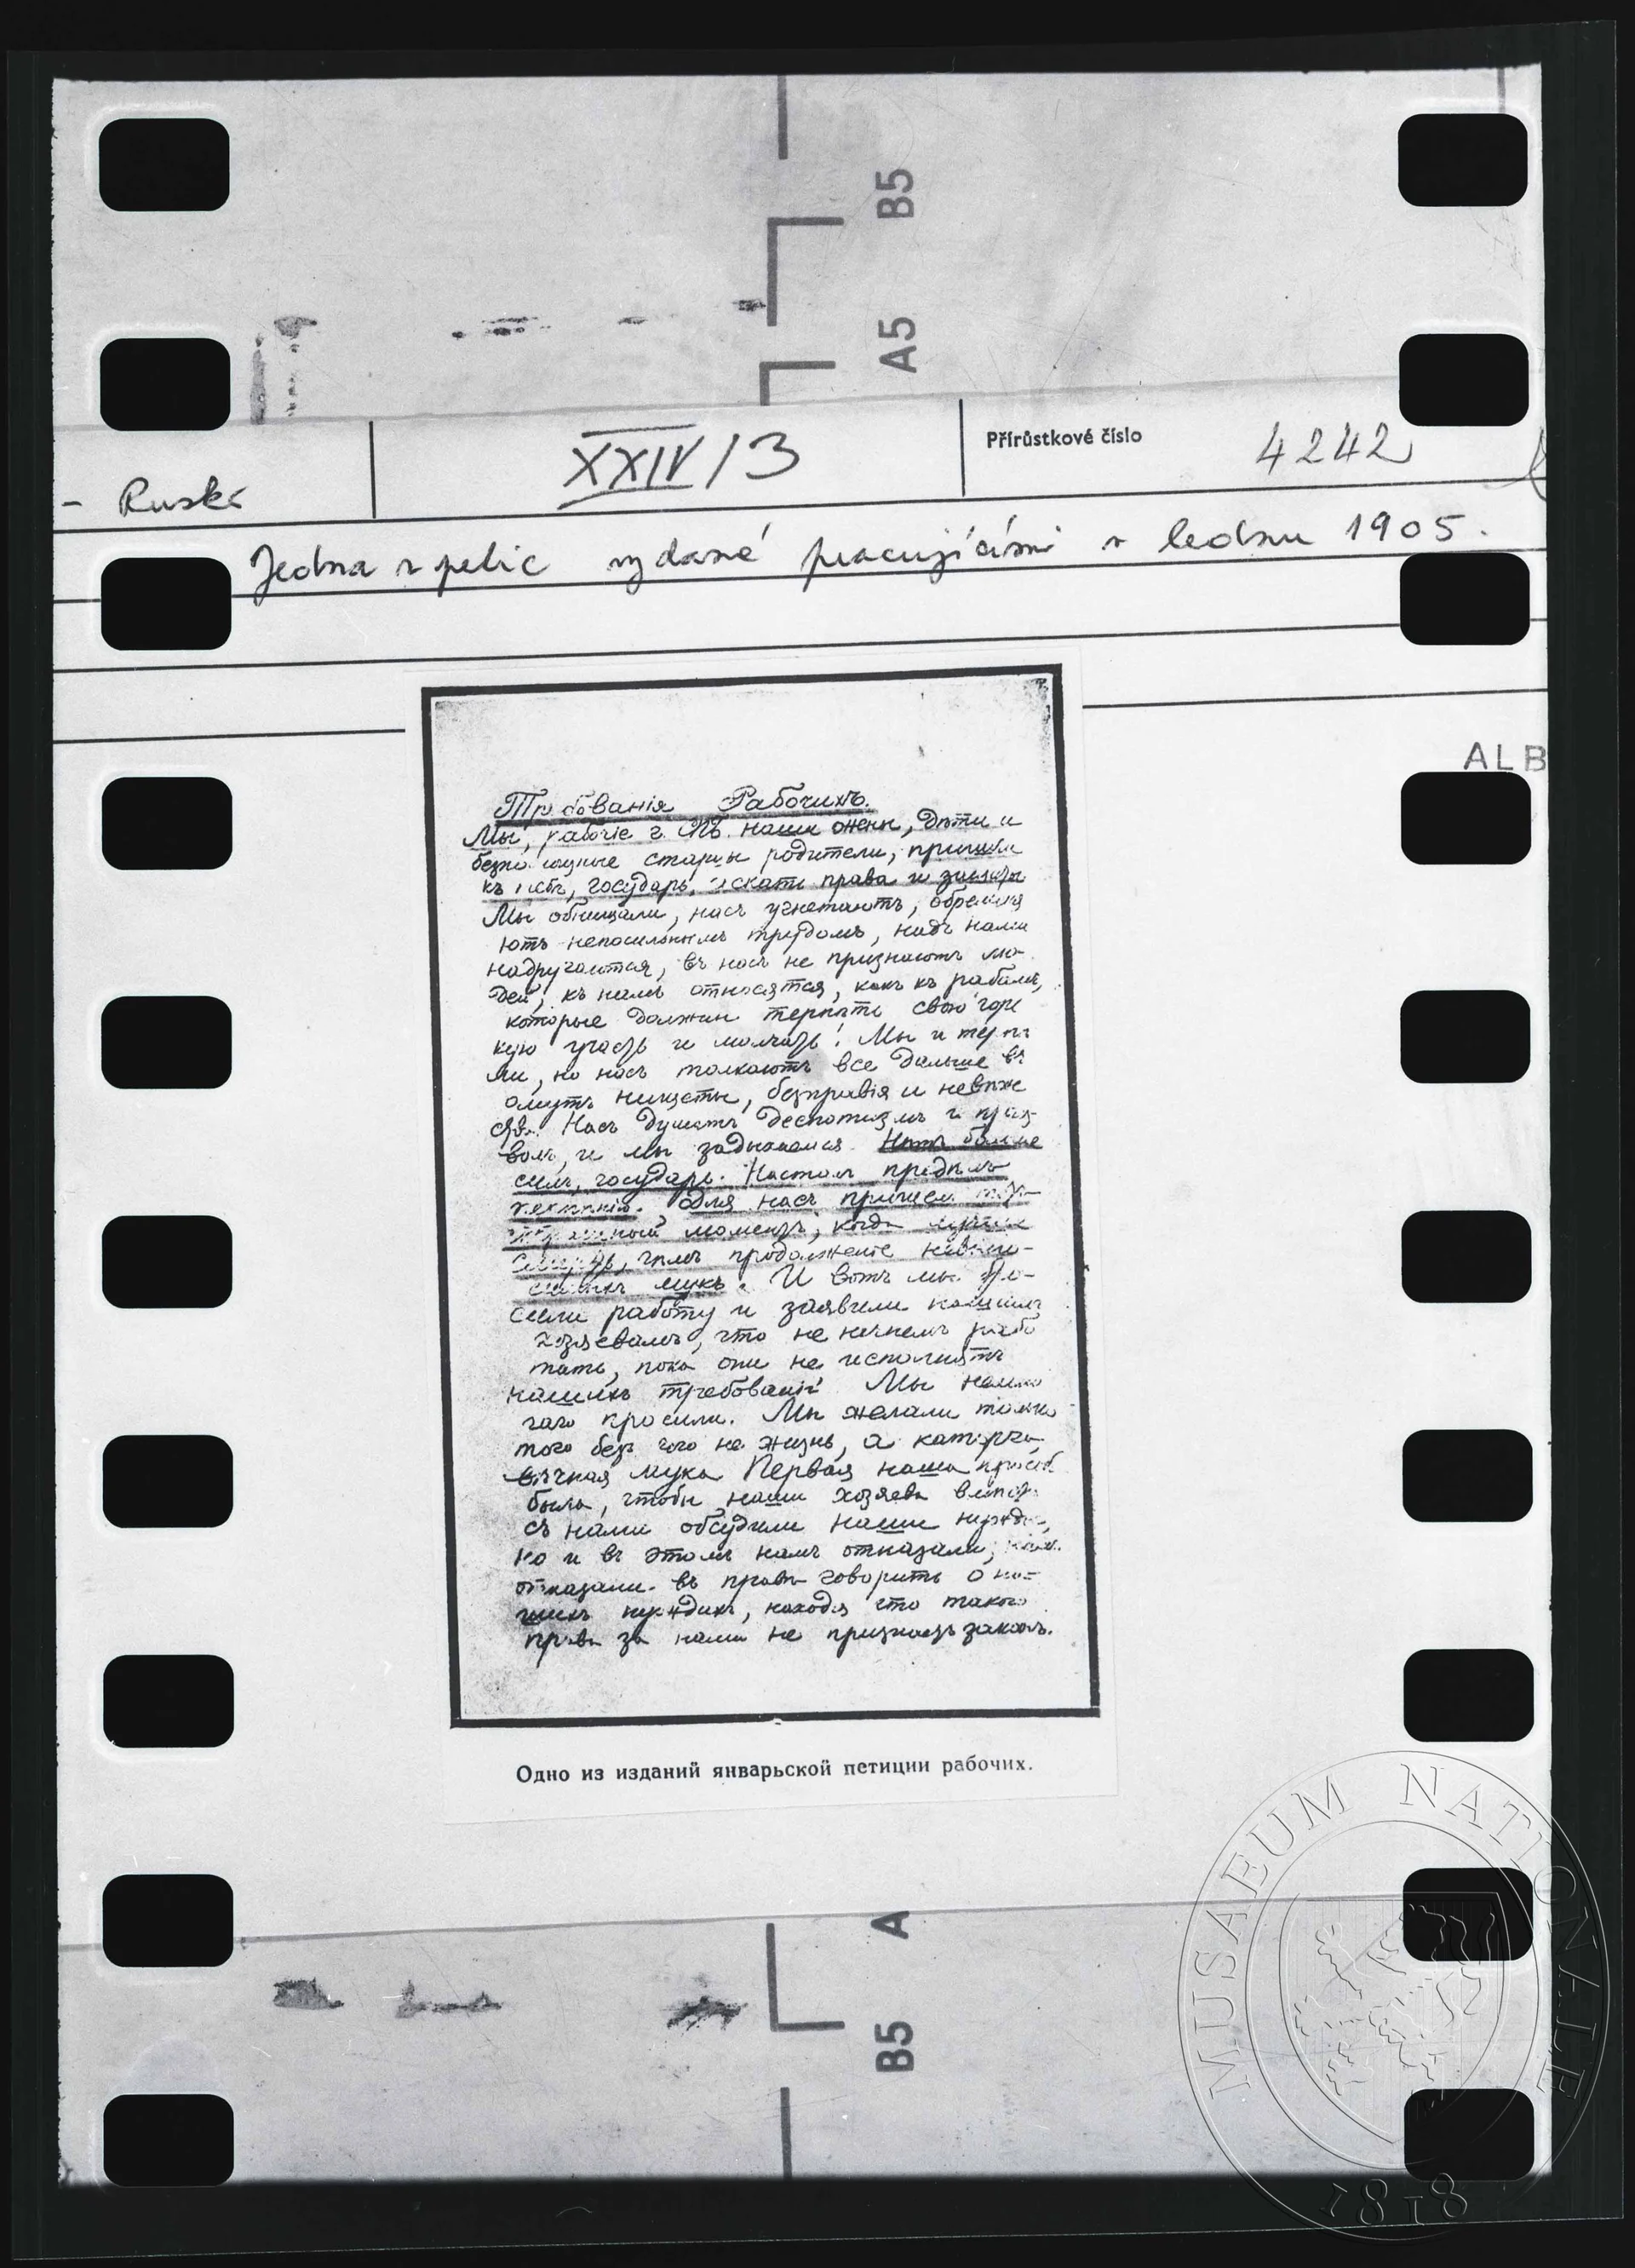 B5
A5
- Ruské
XXIV/3
Přírůstkové číslo
4242
Jedna z petic vydané pracujícími v lednu 1905.
ALB
Требованія Рабочихъ.
Мы, рабочіе г. СПБ. наши жены, дѣти и
старцы родители, пришли
къ тебѣ, государь, искать права и защиты
Мы обнищали, насъ угнетаютъ, обременя
ютъ непосильнымъ трудомъ, надъ нами
надругаются, въ насъ не признаютъ лю-
дей, къ намъ относятся, какъ къ рабамъ,
которые должны терпѣть свою горь
кую участь и молчать! Мы и терпѣ
ли, но насъ толкаютъ все дальше въ
омутъ нищеты, безправія и невѣже
ства. Насъ душатъ деспотизмъ и произ
волъ, и мы задыхаемся. Нѣтъ больше
силъ, государь. Насталъ предѣлъ
терпѣнію. Для насъ пришелъ тотъ
страшный моментъ, когда лучше
смерть, чѣмъ продолженіе невыно-
симыхъ мукъ. И вотъ мы бро-
сили работу и заявили нашимъ
хозяевамъ, что не начнемъ рабо
тать, пока они не исполнятъ
нашихъ требованій. Мы немно
гаго просили. Мы желали только
того безъ чего не жизнь, а каторга,
вѣчная мука Первая наша просьб
была, чтобы наши хозяева вмѣстѣ
съ нами обсудили наши нужды,
но и въ этомъ намъ отказали, намъ
отказали въ правѣ говорить о на-
шихъ нуждахъ, находя что такого
права за нами не признаетъ законъ.
Одно из изданий январьской петиции рабочих.
A
B5
MUSAEUM NATIONALE
1818